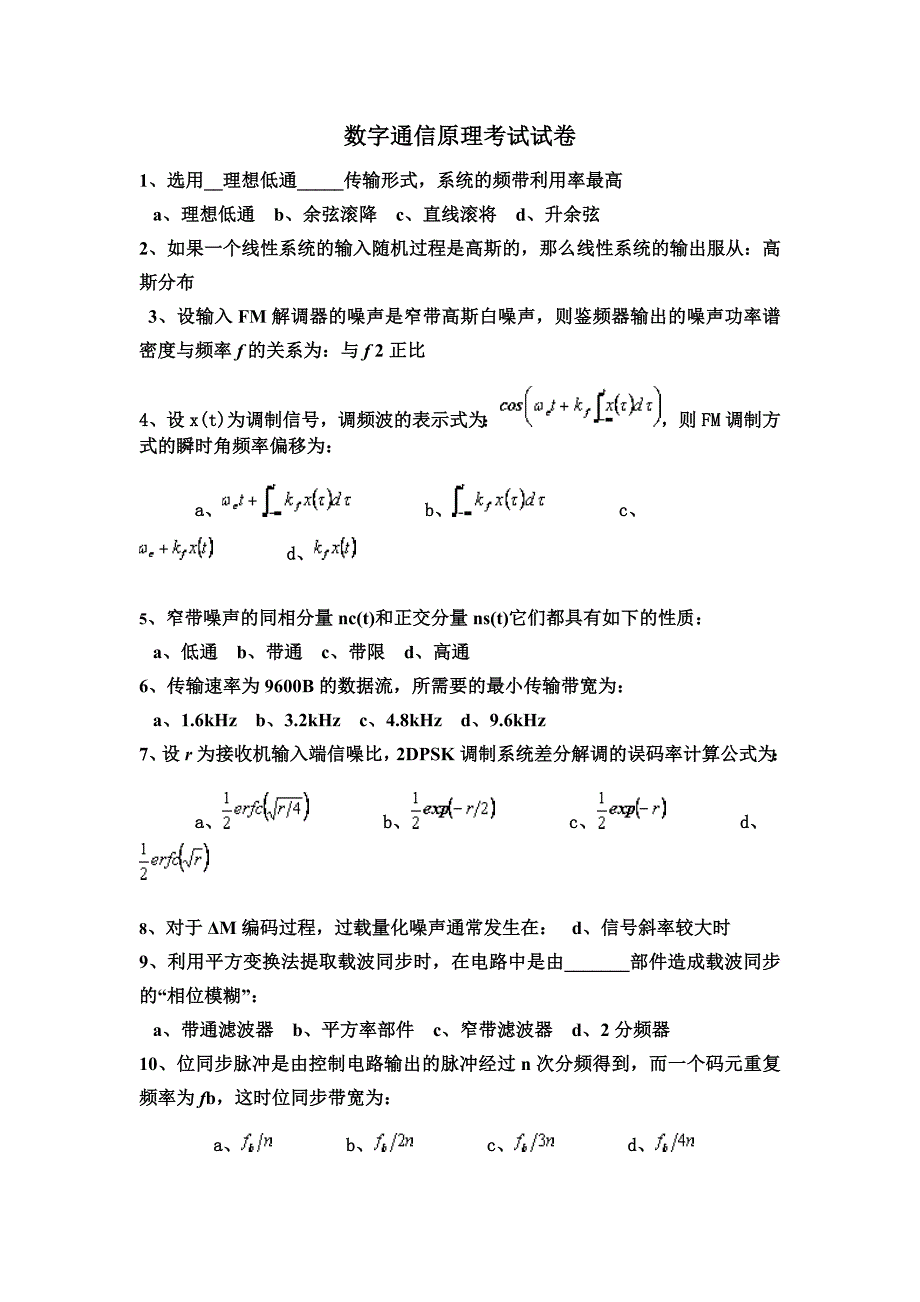 数字通信原理考试试卷
1、选用__理想低通_____传输形式，系统的频带利用率最高
a、理想低通 b、余弦滚降 c、直线滚将 d、升余弦
2、如果一个线性系统的输入随机过程是高斯的，那么线性系统的输出服从：高
斯分布
3、设输入 FM 解调器的噪声是窄带高斯白噪声，则鉴频器输出的噪声功率谱
密度与频率 f 的关系为：与 f 2 正比
4、设 x(t)为调制信号，调频波的表示式为：cos(ω_e t + k_f ∫_{-∞}^t x(τ)dτ)，则 FM 调制方
式的瞬时角频率偏移为：
a、ω_e t + ∫_{-∞}^t k_f x(τ)dτ b、∫_{-∞}^t k_f x(τ)dτ c、
ω_e + k_f x(t) d、k_f x(t)
5、窄带噪声的同相分量 nc(t)和正交分量 ns(t)它们都具有如下的性质：
a、低通 b、带通 c、带限 d、高通
6、传输速率为 9600B 的数据流，所需要的最小传输带宽为：
a、1.6kHz b、3.2kHz c、4.8kHz d、9.6kHz
7、设 r 为接收机输入端信噪比，2DPSK 调制系统差分解调的误码率计算公式为：
a、1/2 erfc(√r/4) b、1/2 exp(−r/2) c、1/2 exp(−r) d、
1/2 erfc(√r)
8、对于 ΔM 编码过程，过载量化噪声通常发生在： d、信号斜率较大时
9、利用平方变换法提取载波同步时，在电路中是由_______部件造成载波同步
的“相位模糊”：
a、带通滤波器 b、平方率部件 c、窄带滤波器 d、2 分频器
10、位同步脉冲是由控制电路输出的脉冲经过 n 次分频得到，而一个码元重复
频率为 fb，这时位同步带宽为：
a、f_b/n b、f_b/2n c、f_b/3n d、f_b/4n